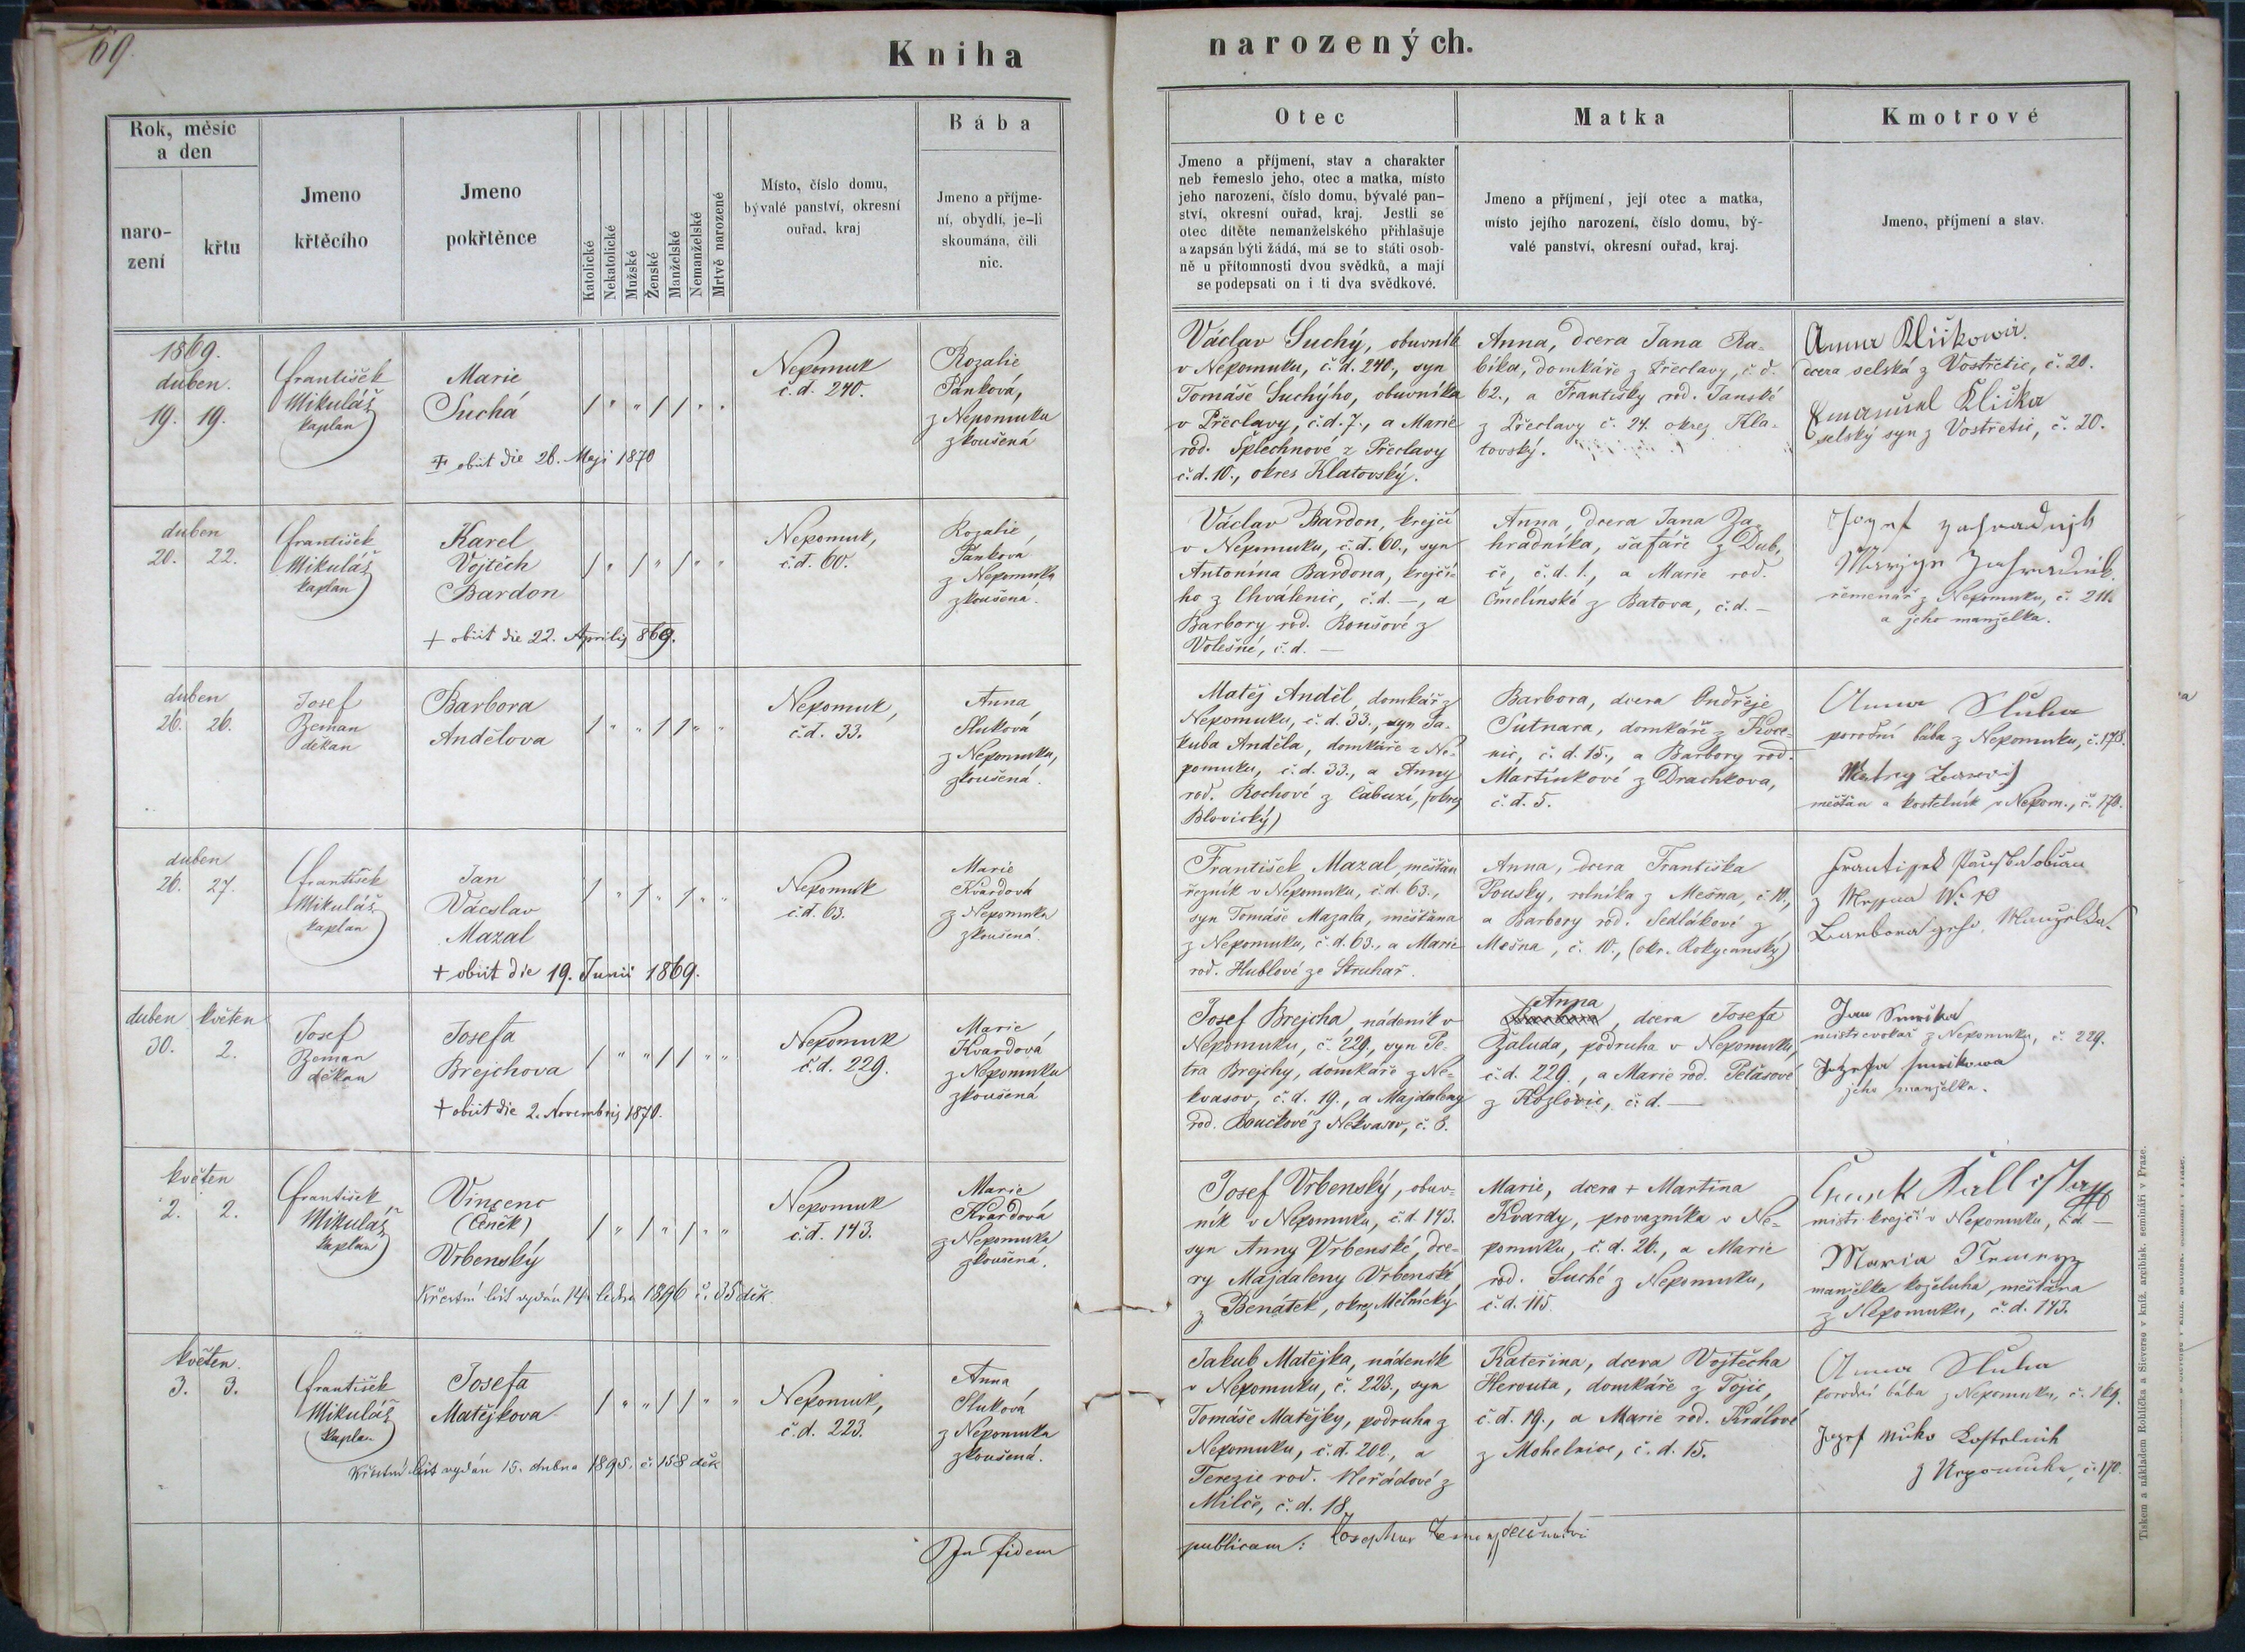 69.
Kniha
narozených.
Rok, měsíc
a den
naro-
zení
křtu
Jmeno
křtěcího
Jmeno
pokřtěnce
Katolické
Nekatolické
Mužské
Ženské
Manželské
Nemanželské
Mrtvě narozené
Místo, číslo domu,
bývalé panství, okresní
ouřad, kraj
Bába
Jmeno a příjme-
ní, obydlí, je-li
skoumána, čili
nic.
Otec
Jmeno a příjmení, stav a charakter
neb řemeslo jeho, otec a matka, místo
jeho narození, číslo domu, bývalé pan-
ství, okresní ouřad, kraj. Jestli se
otec dítěte nemanželského přihlašuje
a zapsán býti žádá, má se to státi osob-
ně u přítomnosti dvou svědků, a mají
se podepsati on i ti dva svědkové.
Matka
Jmeno a příjmení, její otec a matka,
místo jejího narození, číslo domu, bý-
valé panství, okresní ouřad, kraj.
Kmotrové
Jmeno, příjmení a stav.
1869.
duben.
19. 19.
František
Mikuláš
kaplan
Marie
Suchá
+ obiit die 26. Maji 1870
Nepomuk
č.d. 240.
Rozalie
Panková,
z Nepomuku
zkoušená
Václav Suchý, obuvník
v Nepomuku, č.d. 240., syn
Tomáše Suchýho, obuvníka
v Přeclavy, č.d. 7., a Marie
rod. Šplechnové z Přeclavy
č.d. 10., okres Klatovský.
Anna, dcera Jana Ra-
bíka, domkáře z Přeclavy, č.d.
62., a Františky rod. Janské
z Přeclavy č. 24. okres Kla-
tovský.
Anna Kliškowá.
dcera selská z Vostřetic, č. 20.
Emanuel Kliška
selský syn z Vostřetic, č. 20.
duben
20. 22.
František
Mikuláš
kaplan
Karel
Vojtěch
Bardon
+ obiit die 22. Aprilis 869.
Nepomuk,
č.d. 60.
Rozalie
Panková
z Nepomuku
zkoušená.
Václav Bardon, krejčí
v Nepomuku, č.d. 60., syn
Antonína Bardona, krejčí-
ho z Chválenic, č.d. —, a
Barbory rod. Roušové z
Volešné, č.d. —
Anna, dcera Jana Za-
hradníka, šafáře z Dub-
če, č.d. 1., a Marie rod.
Čmelínské z Batova, č.d. —
Jozef Zahradnjk
Zahradnik
řemenář z Nepomuku, č. 211.
a jeho manželka.
duben
26. 26.
Josef
Zeman
děkan
Barbora
Andělova
Nepomuk,
č.d. 33.
Anna
Sluková
z Nepomuku,
zkoušená.
Matěj Anděl, domkář z
Nepomuku, č.d. 33., syn Ja-
kuba Anděla, domkáře z Ne-
pomuku, č.d. 33., a Anny
rod. Rochové z Čabuzí, (okres
Blovický)
Barbora, dcera Ondřeje
Sutnara, domkáře z Koce-
nic, č.d. 15., a Barbory rod.
Martínkové z Drachkova,
č.d. 5.
Anna Sluka
porodní bába z Nepomuku, č. 178.
měšťan a kostelník v Nepom., č. 170.
duben
26. 27.
František
Mikuláš
kaplan
Jan
Václav
Mazal
+ obiit die 19. Junii 1869.
Nepomuk
č.d. 63.
Marie
Kvardová
z Nepomuku
zkoušená.
František Mazal, měšťan
řezník v Nepomuku, č.d. 63.,
syn Tomáše Mazala, měšťana
z Nepomuku, č.d. 63., a Marie
rod. Hublové ze Struhař.
Anna, dcera Františka
Pousky, rolníka z Mešna, č. 10.,
a Barbory rod. Sedlákové z
Mešna, č. 10., (okr. Rokycanský)
duben květen
30. 2.
Josef
Zeman
děkan
Josefa
Brejchova
+ obiit die 2. Novembris 1870.
Nepomuk
č.d. 229.
Marie
Kvardová
z Nepomuku
zkoušená
Josef Brejcha, nádeník v
Nepomuku, č. 229., syn Pe-
tra Brejchy, domkáře z Ne-
kvasov, č.d. 19., a Majdaleny
rod. Boučkové z Nekvasov, č. 8.
Anna
, dcera Josefa
Žaluda, podruha v Nepomuku,
č.d. 229., a Marie rod. Pelásové
z Kozlovic, č.d. —
Jan
z Nepomuku, č. 229.
jeho manželka.
květen
2. 2.
František
Mikuláš
kaplan
Vincenc
(Čeněk)
Vrbenský
Křestní list vydán 14. ledna 1896 č. 35 děk
Nepomuk
č.d. 143.
Marie
Kvardová
z Nepomuku
zkoušená.
Josef Vrbenský, obuv-
ník v Nepomuku, č.d. 143.
syn Anny Vrbenské, dce-
ry Majdaleny Vrbenské,
z Benátek, okres Mělnický
Marie, dcera + Martina
Kvardy, provazníka v Ne-
pomuku, č.d. 26., a Marie
rod. Suché z Nepomuku,
č.d. 115.
mistr krejčí v Nepomuku, č.d. —
Maria
manželka koželuha, měšťana
z Nepomuku, č.d. 143.
květen.
3. 3.
František
Mikuláš
kaplan
Josefa
Matějkova
Křestní list vydán 15. dubna 1895. č. 158 děk
Nepomuk,
č.d. 223.
Anna
Sluková
z Nepomuku
zkoušená.
Jakub Matějka, nádeník
v Nepomuku, č. 223., syn
Tomáše Matějky, podruha z
Nepomuku, č.d. 202, a
Terezie rod. Neřádové z
Milče, č.d. 18
Kateřina, dcera Vojtěcha
Herouta, domkáře z Tojic,
č.d. 19., a Marie rod. Králové
z Mohelnice, č.d. 15.
Anna Sluka
porodní bába z Nepomuku, č. 169.
Jozef Kostelnik
z Nepomuku, č. 170.
In fidem
publicam: Josephus Zeman
Tiskem a nákladem Rohlíčka a Sieverse v kníž. arcibisk. semináři v Praze.